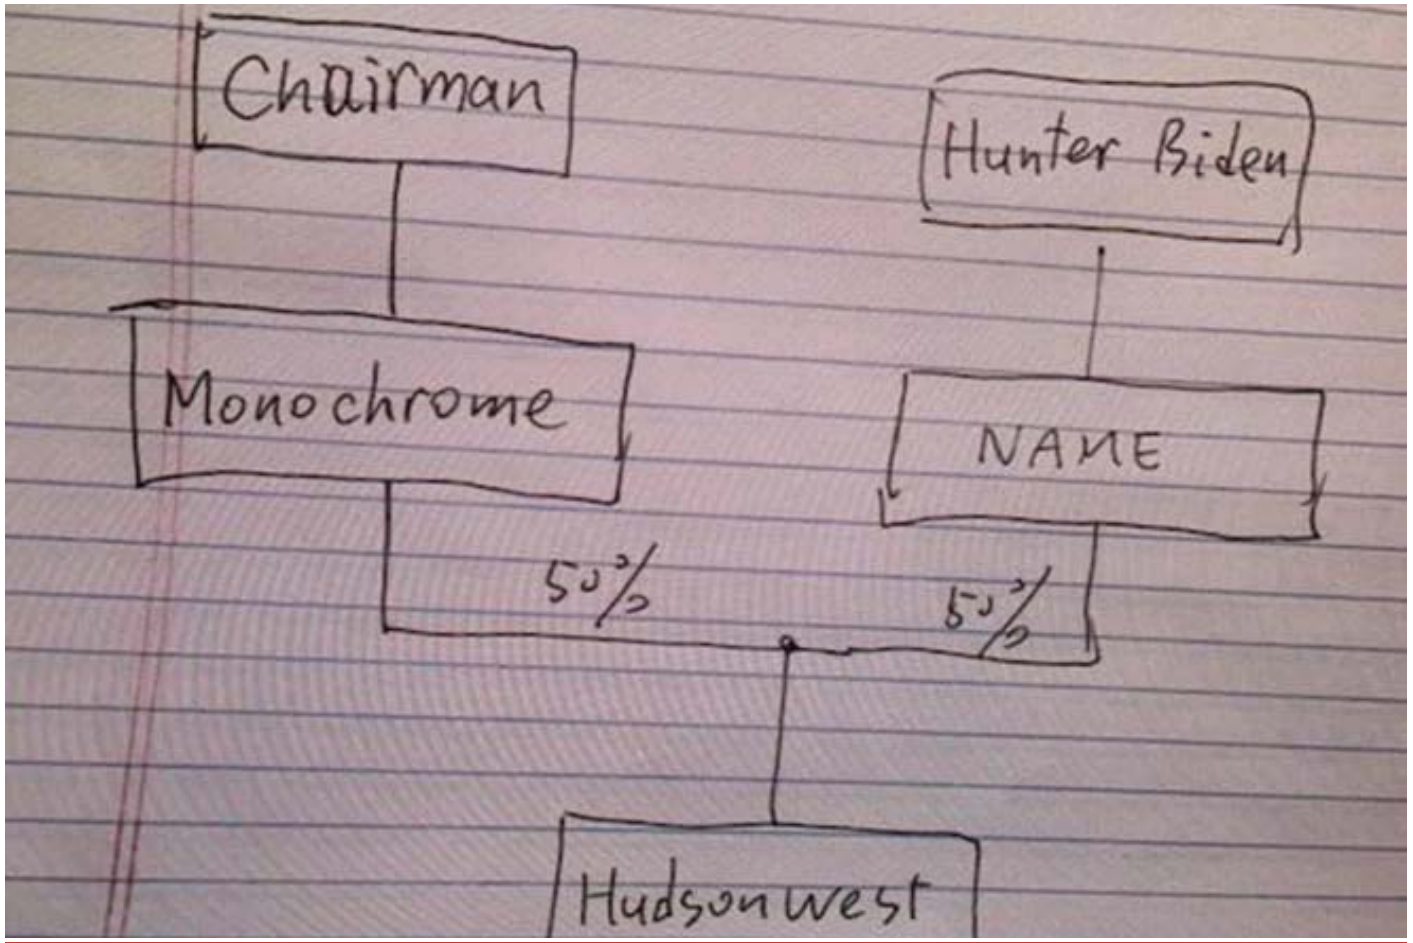 Chairman
Hunter Biden
Monochrome
NAME
50%
50%
Hudsonwest